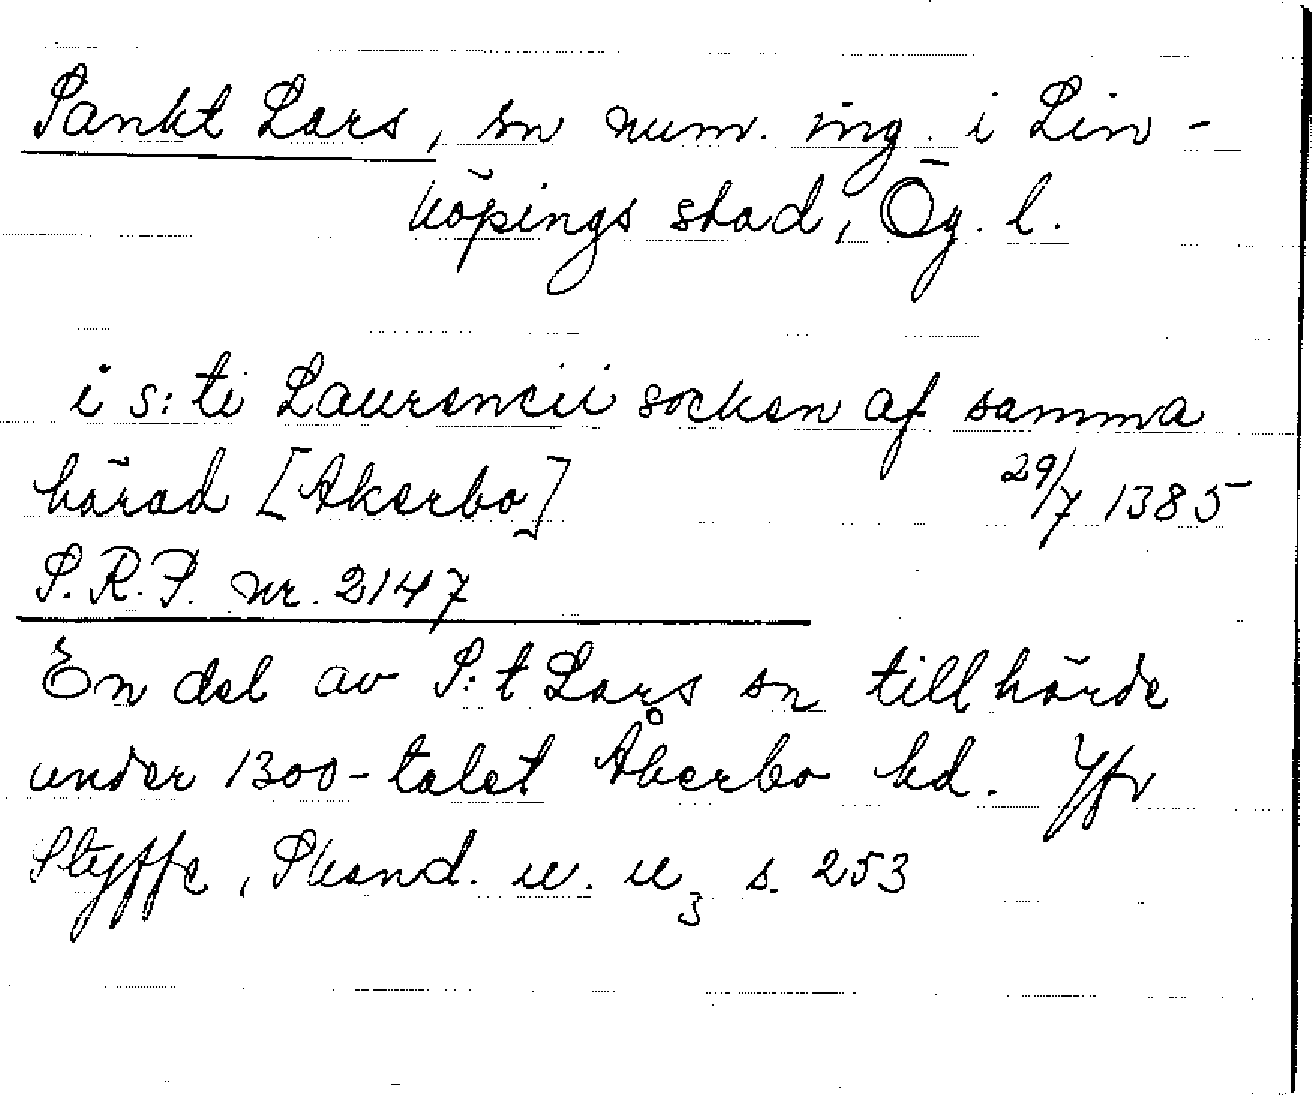 Sankt Lars, sn num. ing. i Lin-
köpings stad, Ög. l.
i s:ti Laurencii socken af samma
härad [Akerbo] 29/7 1385
S.R.P. nr. 2147
En del av S:t Lars sn tillhörde
under 1300-talet Åkerbo hd. Jfr
Styffe, Skand. u. u3 s. 253